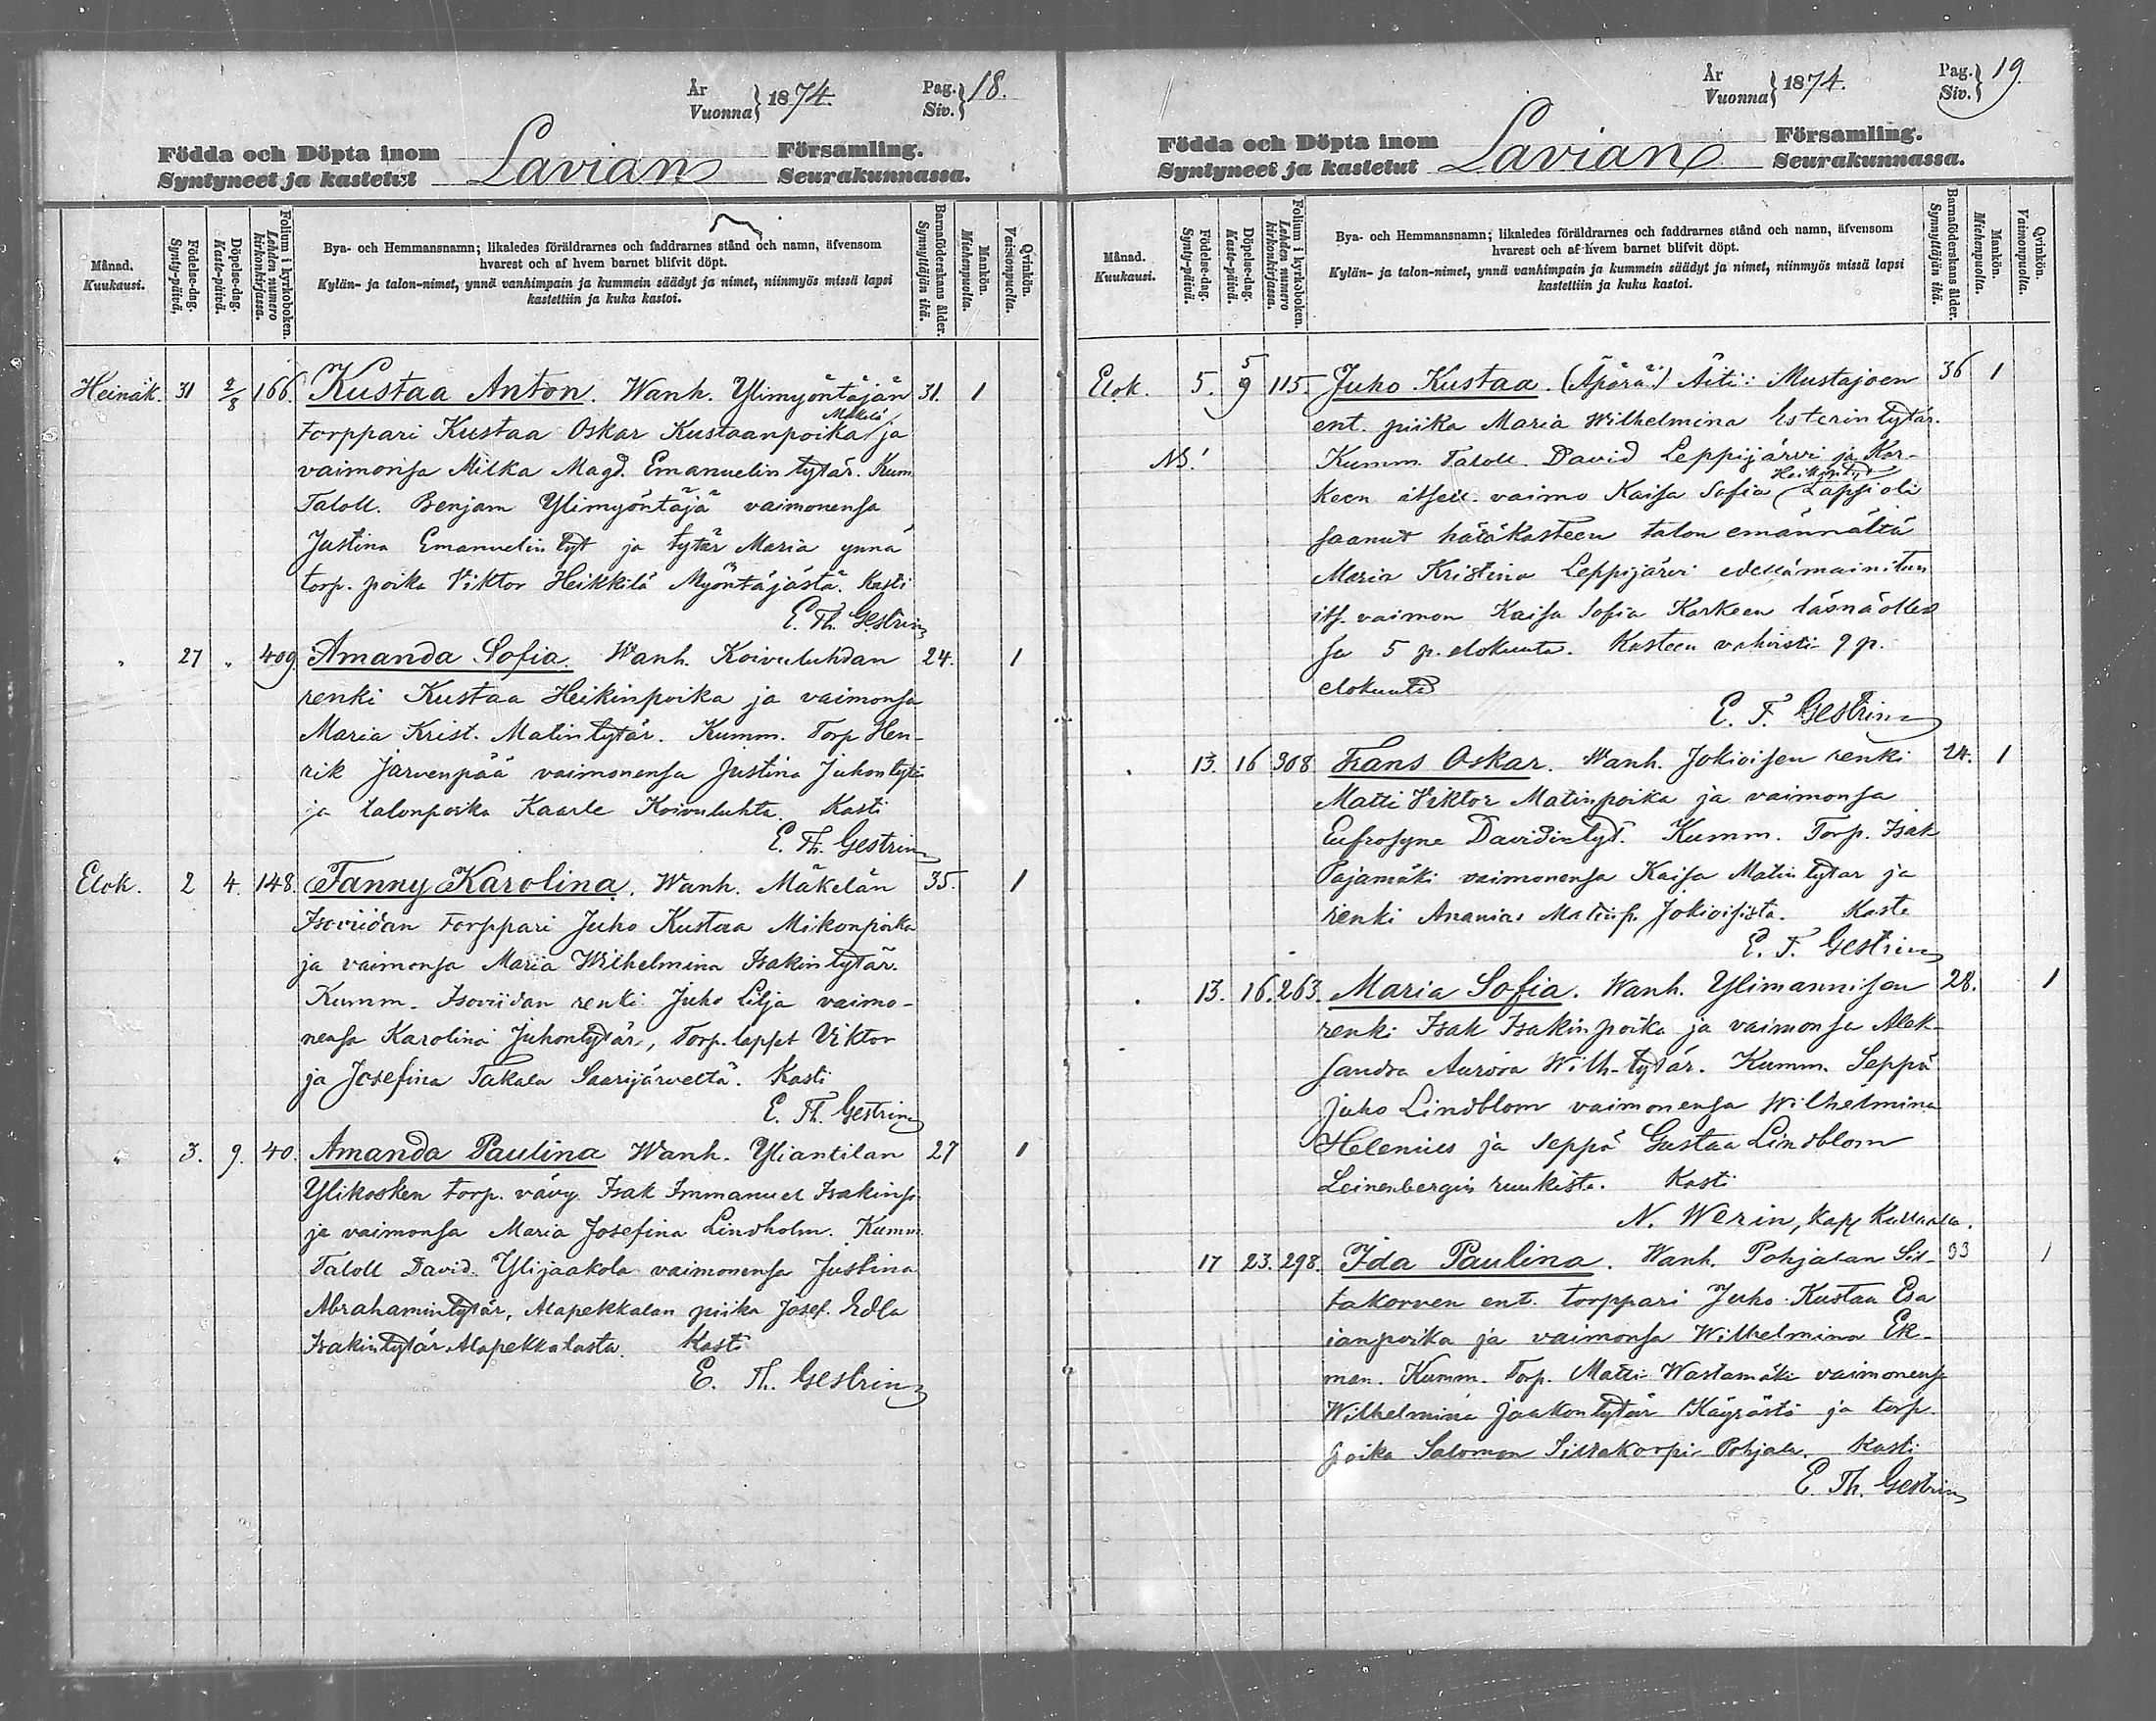 År
Vuonna } 1874.
Pag.
Siv. } 18.
Födda och Döpta inom
Syntyneet ja kastetut
Lavian
Församling.
Seurakunnassa.
Månad.
Kuukausi.
Födelse-dag.
Synty-päivä.
Döpelse-dag.
Kaste-päivä.
Folium i kyrkoboken.
Lehden numero
kirkonkirjassa.
Bya- och Hemmansnamn; likaledes föräldrarnes och faddrarnes stånd och namn, äfvensom
hvarest och af hvem barnet blifvit döpt.
Kylän- ja talon-nimet, ynnä vanhimpain ja kummein säädyt ja nimet, niinmyös missä lapsi
kastettiin ja kuka kastoi.
Barnaföderskans ålder.
Synnyttäjän ikä.
Mankön.
Miehenpuolta.
Qvinkön.
Vaimonpuolta.
Heinäk. 31 2/8 166. Kustaa Anton. Wanh. Ylimyöntäjän 31. 1
torppari Kustaa Oskar Kustaanpoika Mäkelä ja
vaimonsa Milka Magd. Emanuelin tytär. Kum
Taloll. Benjam Ylimyöntäjä vaimonensa
Justina Emanuelin tyt ja tytär Maria ynnä
torp. poika Viktor Heikkilä Myöntäjästä. Kasti
E. Th. Gestrin
" 27 " 409 Amanda Sofia. Wanh. Koivuluhdan 24. 1
renki Kustaa Heikinpoika ja vaimonsa
Maria Krist. Matintytär. Kumm. Torp Hen-
rik Järvenpää vaimonensa Justina Juhontytä
ja talonpoika Kaarle Koivuluhta. Kasti
E. Th. Gestrin
Elok. 2 4. 148. Fanny Karolina. Wanh. Mäkelän 35. 1
Isoviidan torppari Juho Kustaa Mikonpoika
ja vaimonsa Maria Wilhelmina Isakintytär.
Kumm. Isoviidan renki Juho Lilja vaimo-
nensa Karolina Juhontytär, Torp. lapset Viktor
ja Josefina Takala Saarijärveltä. Kasti
E. Th. Gestrin
" 3. 9. 40. Amanda Paulina Wanh. Yliantilan 27 1
Ylikosken torp. vävy Isak Immanuel Isakinp.
ja vaimonsa Maria Josefina Lindholm. Kumm
Taloll David Ylijaakola vaimonensa Justina
Abrahamintytär, Alapekkalan piika Josef. Edla
Isakintytär Alapekkalasta. Kasti
E. Th. Gestrin
År
Vuonna } 1874.
Pag.
Siv. } 19.
Födda och Döpta inom
Syntyneet ja kastetut
Lavian
Församling.
Seurakunnassa.
Månad.
Kuukausi.
Födelse-dag.
Synty-päivä.
Döpelse-dag.
Kaste-päivä.
Folium i kyrkoboken.
Lehden numero
kirkonkirjassa.
Bya- och Hemmansnamn; likaledes föräldrarnes och faddrarnes stånd och namn, äfvensom
hvarest och af hvem barnet blifvit döpt.
Kylän- ja talon-nimet, ynnä vanhimpain ja kummein säädyt ja nimet, niinmyös missä lapsi
kastettiin ja kuka kastoi.
Barnaföderskans ålder.
Synnyttäjän ikä.
Mankön.
Miehenpuolta.
Qvinkön.
Vaimonpuolta.
Elok. 5. 5 9 115. Juho Kustaa. (Äpärä.) Äiti: Mustajoen 36 1
ent. piika Maria Wilhelmina Esterintytär.
NB! Kumm. Taloll. David Leppijärvi ja Kar-
keen itsell. vaimo Kaisa Sofia Lapsi oli
saanut hätäkasteen talon emännältä
Maria Kristina Leppijärvi edellämainitun
its. vaimon Kaisa Sofia Karkeen läsnäolles
sa 5 p. elokuuta. Kasteen vahvisti 9 p.
elokuuta
E. T. Gestrin
" 13. 16 308 Frans Oskar. Wanh. Jokioisen renki 24. 1
Matti Viktor Matinpoika ja vaimonsa
Eufrosyne Davidintyt. Kumm. Torp. Isak
Pajamäki vaimonensa Kaisa Matintytar ja
renki Ananias Matinp. Jokioisista. Kasti
E. T. Gestrin
" 13. 16. 263. Maria Sofia. Wanh. Ylimannisen 28. 1
renki Isak Isakinpoika ja vaimonsa Alek-
sandra Aurora Wilh-tytär. Kumm. Seppä
Juho Lindblom vaimonensa Wilhelmina
Helenius ja seppä Gustaa Lindblom
Leinenbergin ruukista. Kasti
N. Werin, kap. Kullaala.
17 23. 298. Ida Paulina. Wanh. Pohjalan Sil- 33 1
takorven ent. torppari Juho Kustaa Esa
ianpoika ja vaimonsa Wilhelmina Ek-
man. Kumm. Torp. Matti Wastamäki vaimonensa
Wilhelmina Jaakontytär Käyrästä ja torp.
poika Salomon Siltakorpi Pohjala. Kasti
E. Th. Gestrin